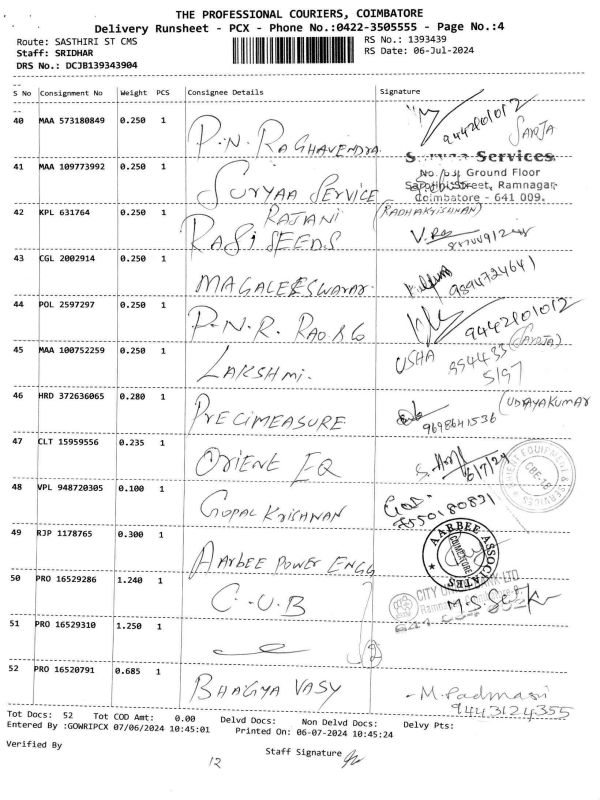 THE PROFESSIONAL COURIERS, COIMBATORE
Delivery Runsheet - PCX - Phone No.:0422-3505555 - Page No.:4
Route: SASTHIRI ST CMS RS No.: 1393439
Staff: SRIDHAR RS Date: 06-Jul-2024
DRS No.: DCJB139343904
S No Consignment No Weight PCS Consignee Details Signature
40 MAA 573180849 0.250 1 P.N. RAGHAVENDRA 9442101012 SAROJA
41 MAA 109773992 0.250 1 SURYAA SERVICE Services
Ground Floor
Street, Ramnagar
Coimbatore - 641 009.
42 KPL 631764 0.250 1 RAJANI (RADHAKRISHNAN)
RASI SEEDS
43 CGL 2002914 0.250 1 MAGALEESWARAR 9894724641
44 POL 2597297 0.250 1 P.N.R. RAO & CO 9442101012
(SAROJA)
45 MAA 100752259 0.250 1 LAKSHMI. USHA 994433
5197
46 HRD 372636065 0.280 1 PRECIMEASURE (UDHAYAKUMAR
9698641536
47 CLT 15959556 0.235 1 ORIENT EQ 6/7/24
CBE-18
48 VPL 948720305 0.100 1 GOPAL KRISHNAN
49 RJP 1178765 0.300 1 AARBEE POWER ENGG AARBEE ASSOCIATES
COIMBATORE
50 PRO 16529286 1.240 1 C.U.B CITY UNION BANK LTD
51 PRO 16529310 1.250 1
52 PRO 16520791 0.685 1 BHAGYA VASY - M. Padmasri
9443124355
Tot Docs: 52 Tot COD Amt: 0.00 Delvd Docs: Non Delvd Docs: Delvy Pts:
Entered By :GOWRIPCX 07/06/2024 10:45:01 Printed On: 06-07-2024 10:45:24
Verified By Staff Signature
12